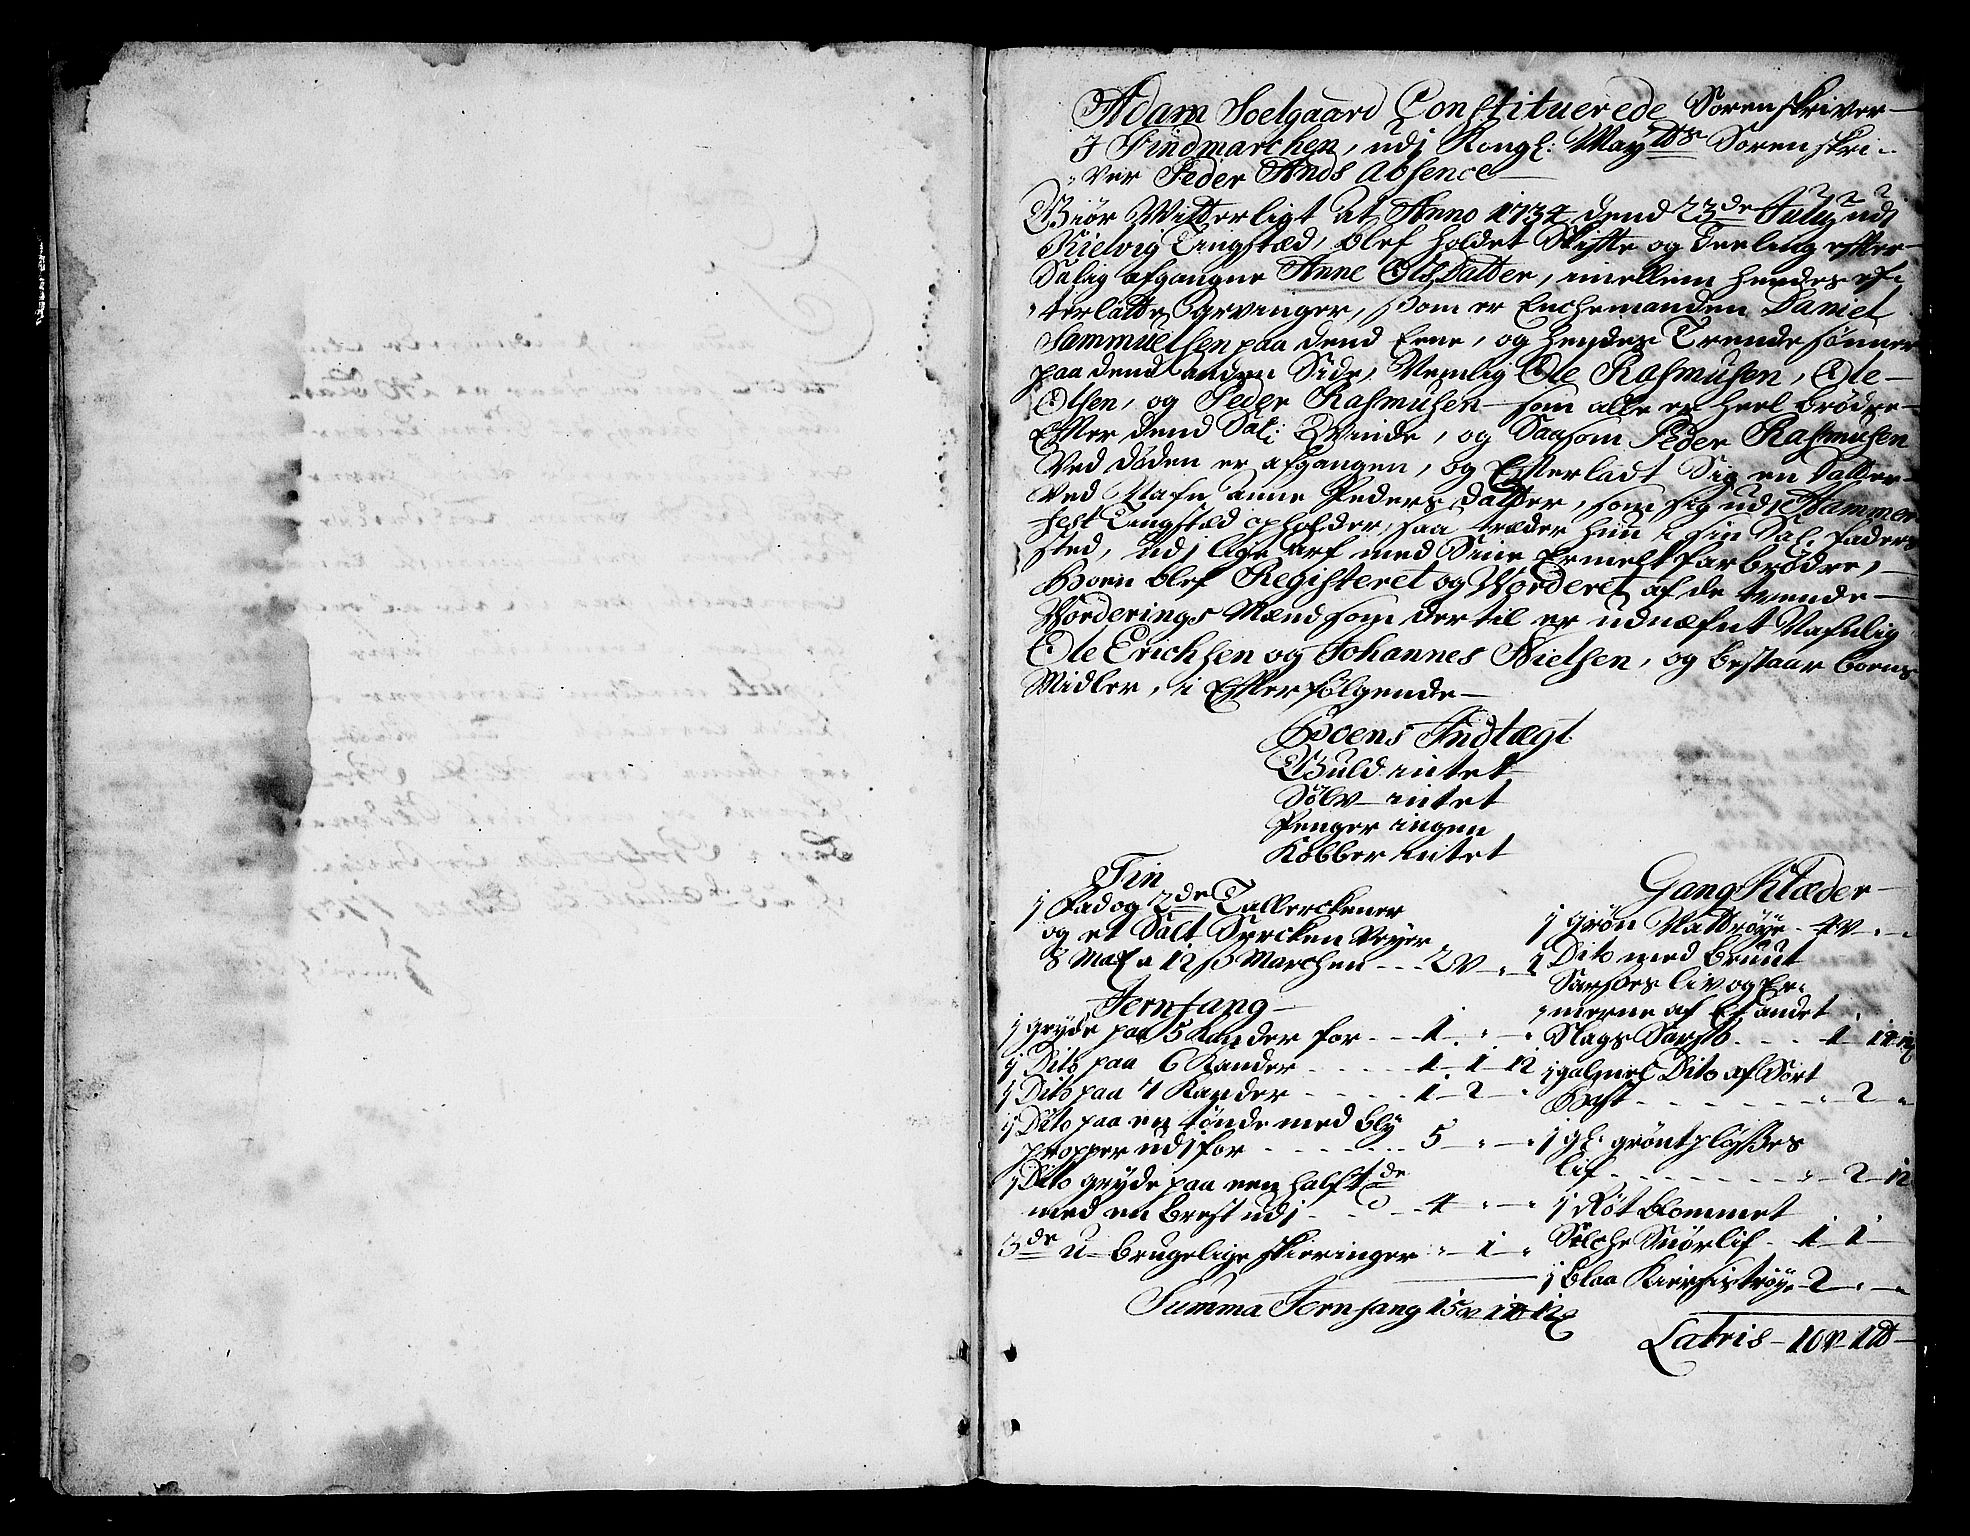 Adam Soelgaard Constituerede Sorenskriver
I Findmarchen, udj Kongl: Mayts Sorenskri-
ver Peder Ands Absence
Giör Witterligt at Anno 1734 dend 23de July udj
Kielvig Tingstæd, blef holdet Skifte og Deeling efter
Salig afgangne Anne Olsdatter, imellem hendes ef-
terlatte Arvinger, som er Enchemanden Daniel
Sammuelsen paa dend Eene, og hendes Trende sönner
paa dend anden Side, Nemlig Ole Rasmusen, Ole
Olsen, og Peder Rasmusen som alle er heel brödre
Efter dend Sal: Qvinde, og Saasom Peder Rasmusen
Ved döden er afgangen, og Efterladt Sig en datter
Ved Nafn Anne Peders datter, som sig udj Hammer-
fest Tingstæd opholder, saa træder hun i sin Sal: faders
sted, udj lige arf med Sine Ermelt farbrödre,
Boen blef Registeret og Vorderet af de tvende
Vorderings Mænd som dertil er udnæfnt Nafnlig
Ole Erichsen og Johannes Nielsen, og bestaar boens
Midler, i Efterfölgende
Boens Indtægt
Guld intet
Sölv intet
Penger ingen
Kobber intet
Tin
1 Fad og 2de Tallerckener
og et Salt Sercken Veyer
8 Mk a 12 s Marchen - - - 2 V " 1
Jernfang
1 gryde paa 5 Kander for - - - 1 " "
1 Dito paa 6 Kander - - - - - 1 1 12
1 Dito paa 7 Kander - - - - - 1 2 "
1 Dito paa en tönde med bly
propper udj for - - - - - - 5 " "
1 Dito gryde paa een half tde
med en brest udj - - - - 4 " "
3de u-brugelige skieringer " 1 "
Summa Jernfang 15 V 1 12
Gang Klæder
1 grön Nattröye - 4 V " "
1 Dito med bruunt
Sarses liv og Er-
merne af Et andet
Slags Sars - - - - 1 1 12
1 gammel Dito af Sort
- - - - - - - " 2 "
1 gl: grönt plysses
lif - - - - - - - " 2 12
1 Röt blommet
Silche Snörlif - - 1 1
1 blaa Kirseiströye 2 " "
Latris - 10 V 1